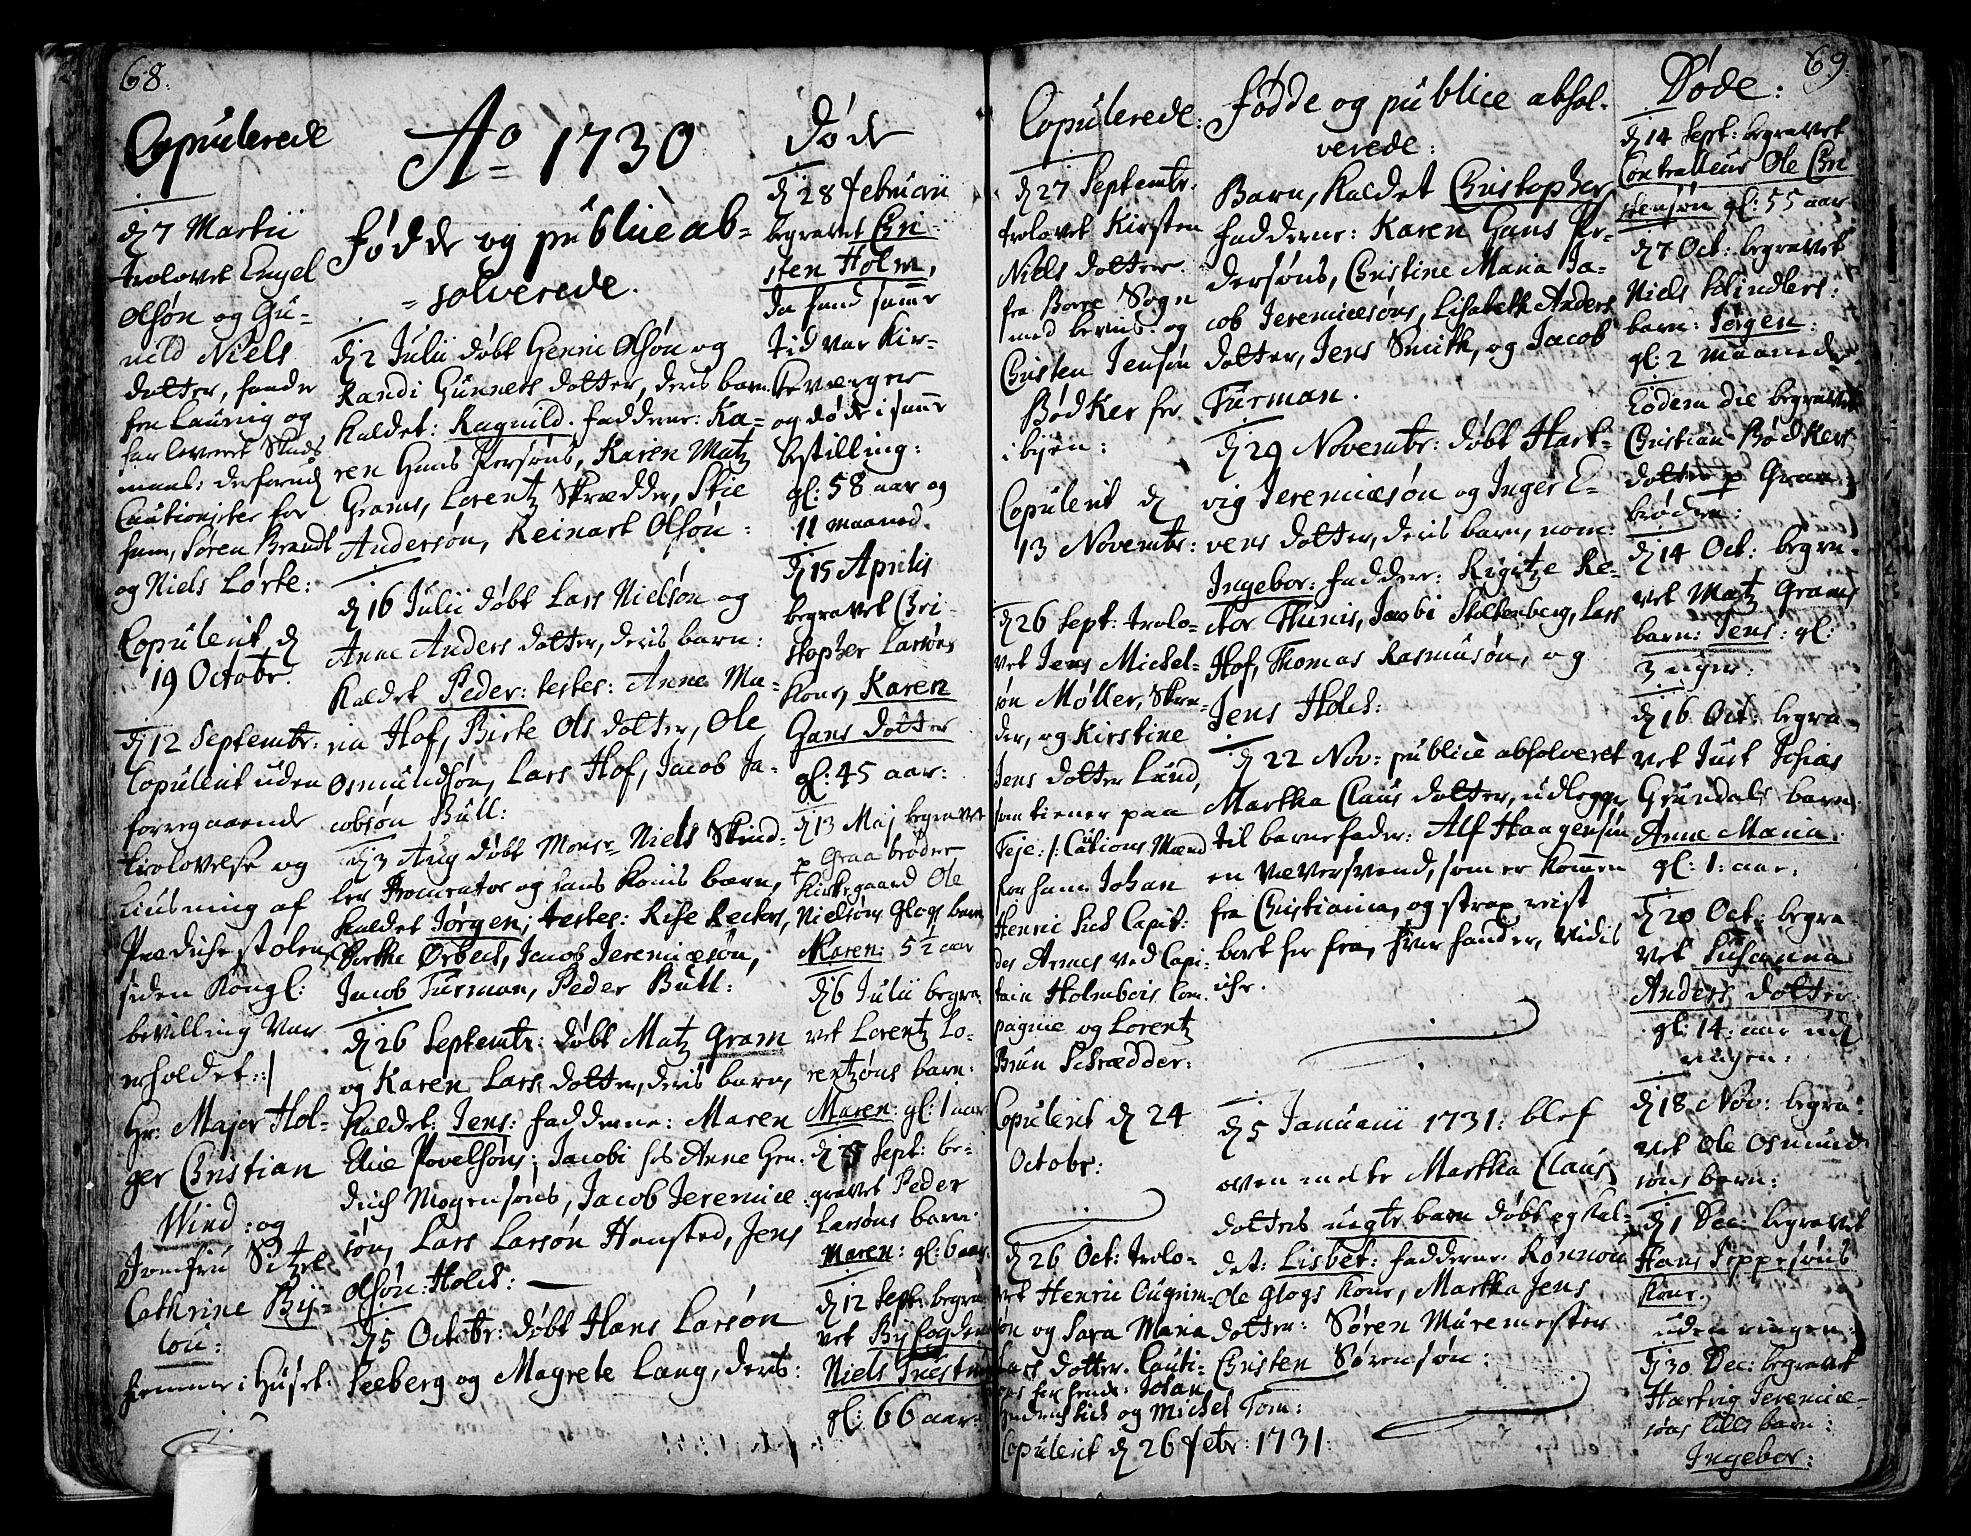 68.
Copulerede
d 7 Martii
trolovet Engel
Olsøn og Gu-
nild Niels
dotter, hande
fra Laurvig og
har leveret Skuds
maal: derforud
Cautionister for
ham, Søren Brandt
og Niels Lørke:
Copulerit, d
19 Octobr.
d 12 Septembr:
Copulerit uden
foregaaende
trolovelse og
liusning af
Prædichestolen,
siden Kongl:
bevilling var
erholdet:/
Hr: Major Hol-
ger Christian
Wind: og
Jomfru Sitzel
Cathrine Bÿ-
lou:
hiemme i Huset.
Ao 1730
fødde og publice ab-
= solverede.
d 2 Julii døbt Henric Olsøn og
Randi Gunners dotter, deris barn
Kaldet: Ragnild. faddere: Ka-
ren Hans Persøns, Karen Matz
Grams, Lorentz Skrædder, Stie
Andersøn, Reinart Olsøn:
d 16 Julii døbt Lars Nielsøn og
Anne Anders dotter, deris barn:
Kaldet Peder: testes: Anne Ma-
ria Hof, Birte Ols dotter, Ole
Osmundsøn, Lars Hof, Jacob Ja-
cobsøn Bull:
d 3 Aug døbt Monsr Niels Skind-
ler Promentor og hans Konis barn,
Kaldet Jørgen; testes: Rise Rectors,
Dorthe Orbech, Jacob Jeremiæsøn,
Jacob Furman, Peder Bull:
d 26 Septembr: døbt Matz Gram
og Karen Lars dotter, deris barn,
Kaldet: Jens: faddere: Maren
Elice Povelsøns; Jacobi hos Anne Hen-
rich Mogensøns, Jacob Jeremiæ
søn, Lars Larsøn Hansted, Jens
Olsøn Holch:
d 5 Octobr: døbt Hans Larsøn
Seeberg og Magrete Lang, deris:
døde
d 28 februarii
begravet Chri-
sten Holm,
da hand samme
tid var Kir-
keværger
og døde i samme
bestilling:
gl: 58 aar og
11 maaned.
d 15 Aprilis
begravet Chri-
stopher Larsøns
Kone, Karen
Hans dotter
gl: 45 aar:
d 13 Maj begravet
p Graabrødre
Kirkegaard Ole
Nielsøns Glogs barn
Maren: 5½ aar
d 6 Julii begra-
vet Lorentz Lo-
rentzøns barn:
Maren: gl: 1 aar
d Sept: be-
gravet Peder
Larsøns barn
Maren: gl: 6 aar.
d 12 Sept: begra-
vet Bÿfogden
Niels
gl: 66 aar:
69.
Copulerede:
d 27 Septembr.
trolovet Kirsten
Niels dotter
fra Borre Sogn
med beviis og
Christen Jensøn
Bødker her
i byen:
Copulerit d
13 Novembr:
d 26 Sept: trolo-
vet Jens Michel-
søn Møller, Skræ-
der, og Kirstine
Jens dotter Lund,
som tiener paa
Teje:/: Cautions Mænd
for ham Johan
Henric Lud Capit:
des Armes ved Capi-
tain Holmbois Com-
pagnie og Lorentz
Brun Schrædder:
Copulerit d 24
Octobr:
d 26 Oct: trolo-
vet Henric Ougrim-
søn og Sara Maria
Lars dotter. Cauti-
ons for hende: Johan
Hendrich Lud og Michel Tom:
Copulerit d 26 febr: 1731.
fødde og publice absol-
verede:
Barn, Kaldet Christopher
faddere: Karen Hans Pe-
dersøns, Christine Maria Ja-
cob Jeremiæsøns, Lisabeth Anders
dotter, Jens Smith, og Jacob
Furman.
d 29 Novembr: døbt Hart-
vig Jeremiæsøn og Inger E-
vens dotter, deris barn, nom:
Ingebor: fadder: Rigitze Re-
ctor Thunis, Jacobi Stoltenberg, Lars
Hof, Thomas Rasmusøn, og
Jens Holch:
d 22 Nov: publice absolveret
Martha Claus dotter, udlegger
til barnefader: Alf Haagensøn
en Væversvend, som er kommen
fra Christiania, og strax reist
bort her fra, hvor hand er, vidis
iche.
d 5 Januarii 1731: blef
oven melte Martha Claus
dotters uegte barn døbt og Kal-
det: Lisbet: faddere: Rønnou
Ole Glogs Kone, Martha Jens
dotter: Søren Muremester
Christen Sørensøn:
Døde:
d 14 Sept: begravet
Controlleur Ole Chri
stensøn gl: 55 aar
d 7 Oct: begravet
Niels Skindlers:
barn: Jørgen:
gl: 2 maaneder
Eodem die begravet
Christian Bødkers
dotter p Graa
brødre:
d 14 Oct: begra-
vet Matz Grams
barn: Jens: gl:
3 uger:
d 16 Oct: begra-
vet Just Tobias
Grundals barn:
Anne Maria:
gl: 1: aar.
d 20 Oct: begra-
vet Susanna
Anders dotter:
gl: 14: aar ud
ringen:
d 18 Nov: begra-
vet Ole Osmund
søns barn:
d 1 Dec: begravet
Hans Jeppesøns
Kone.
uden ringen:
d 30 Dec: begravet
Hartvig Jeremiæ-
søns lille barn:
Ingebor: